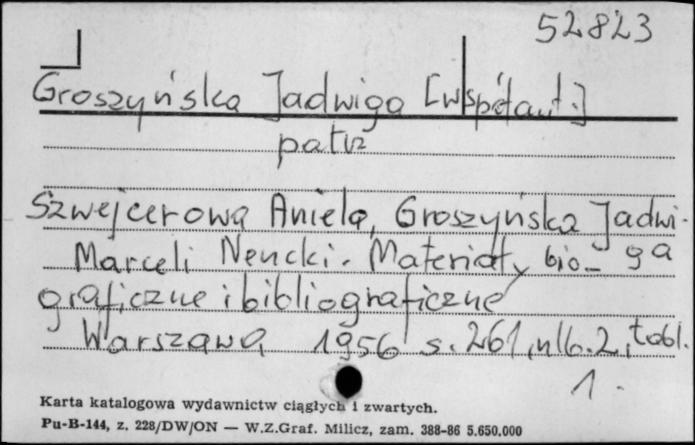 52823
Groszyńska Jadwiga [współaut.]
patrz
Szwejcerowa Aniela, Groszyńska Jadwi-
ga
Marceli Nencki. Materiały bio-
graficzne i bibliograficzne
Warszawa 1956 s. 261, nlb. 2, tabl.
1.
Karta katalogowa wydawnictw ciągłych i zwartych.
Pu-B-144, z. 228/DW/ON — W.Z.Graf. Milicz, zam. 388-86 5.650.000